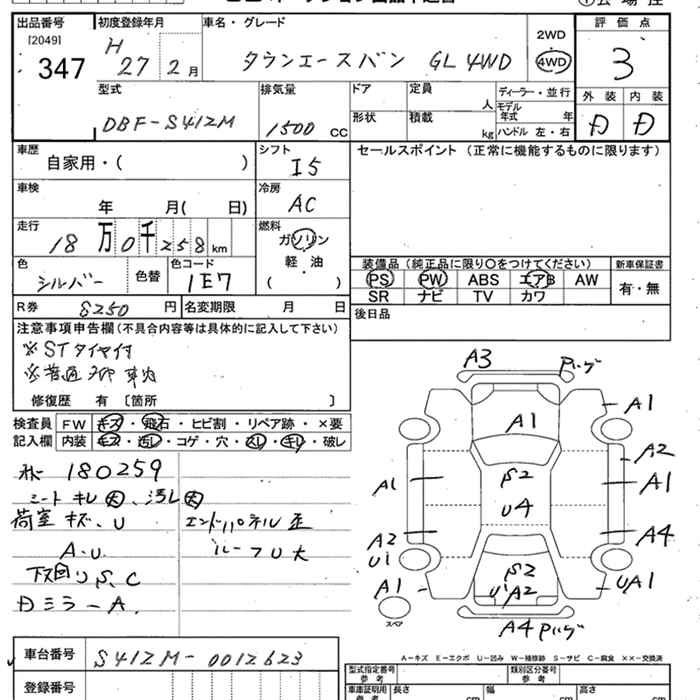 出品番号 初度登録年月 車名・グレード 評価点
[2049]
347
H 27 2 月
タウンエースバン GL 4WD
2WD
4WD
3
外装 内装
D D
型式 排気量 ドア 定員 人 ディーラー・並行
DBF-S412M 1500 CC
モデル年式 年
形状 積載 kg ハンドル 左・右
車歴 自家用・( )
シフト I5
セールスポイント (正常に機能するものに限ります)
車検 年 月( 日)
冷房 AC
走行 18 万 0 千 258 km
燃料 ガソリン
軽・油
( )
色 シルバー 色替 色コード 1E7
装備品 (純正品に限り○をつけてください) 新車保証書
PS PW ABS エアB AW 有・無
SR ナビ TV カワ
R券 8250 円 名変期限 月 日
後日品
注意事項申告欄 (不具合内容等は具体的に記入して下さい)
※STタイヤ付
修復歴 有 〔箇所 〕
検査員 FW キズ・飛石・ヒビ割・リペア跡・×要
記入欄 内装 キズ・汚レ・コゲ・穴・スレ・キレ・破レ
180259
シートキレ大、汚レ大
荷室キズ、U エンドパネル歪
A.U. ルーフU大
下回リS、C
Dミラー A.
A3
A1 A1
S2 A2
A1 A1
U4
A2 A4
U1
S2
A1 U1 A2 UA1
スペア
A4
A-キズ E-エクボ U-凹み W-補修跡 S-サビ C-腐食 ××-交換済
車台番号 S412M-0012623
型式指定番号 類別区分番号
登録番号
車庫証明用 参考 長さ 幅 高さ